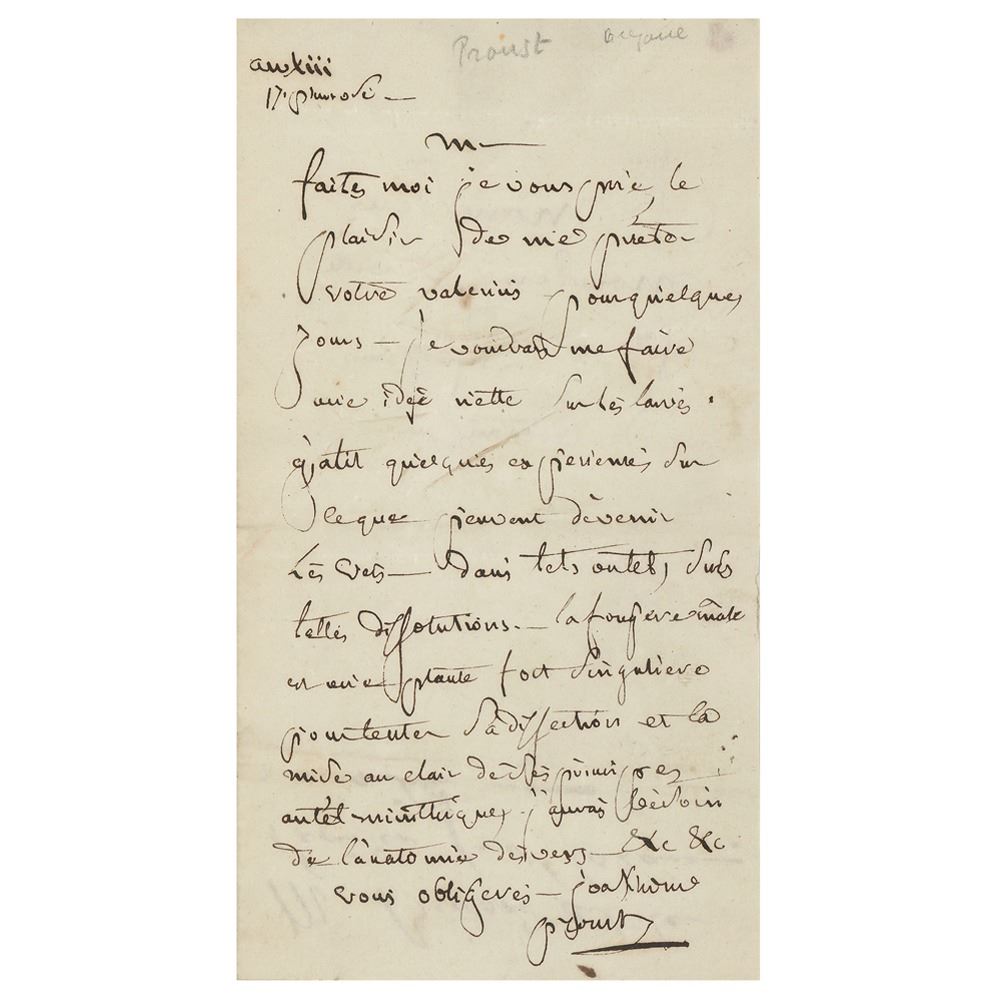 Proust
an xiii
17. pluviose —
M —
faites moi je vous prie, le
plaisir de me prêter
votre valerius pour quelques
jours — je voudrais me faire
une idée nette sur les larves.
quelques experiences sur
ce que peuvent devenir
Les vers — dans tels ou tels sucs
telles dissolutions. — la fougere mâle
est une plante fort singuliere
pour tenter sa dissection et la
mise au clair de ses principes
antelminthiques, j'aurais besoin
de l'anatomie des vers — &c &c
vous obligeres — joa
proust